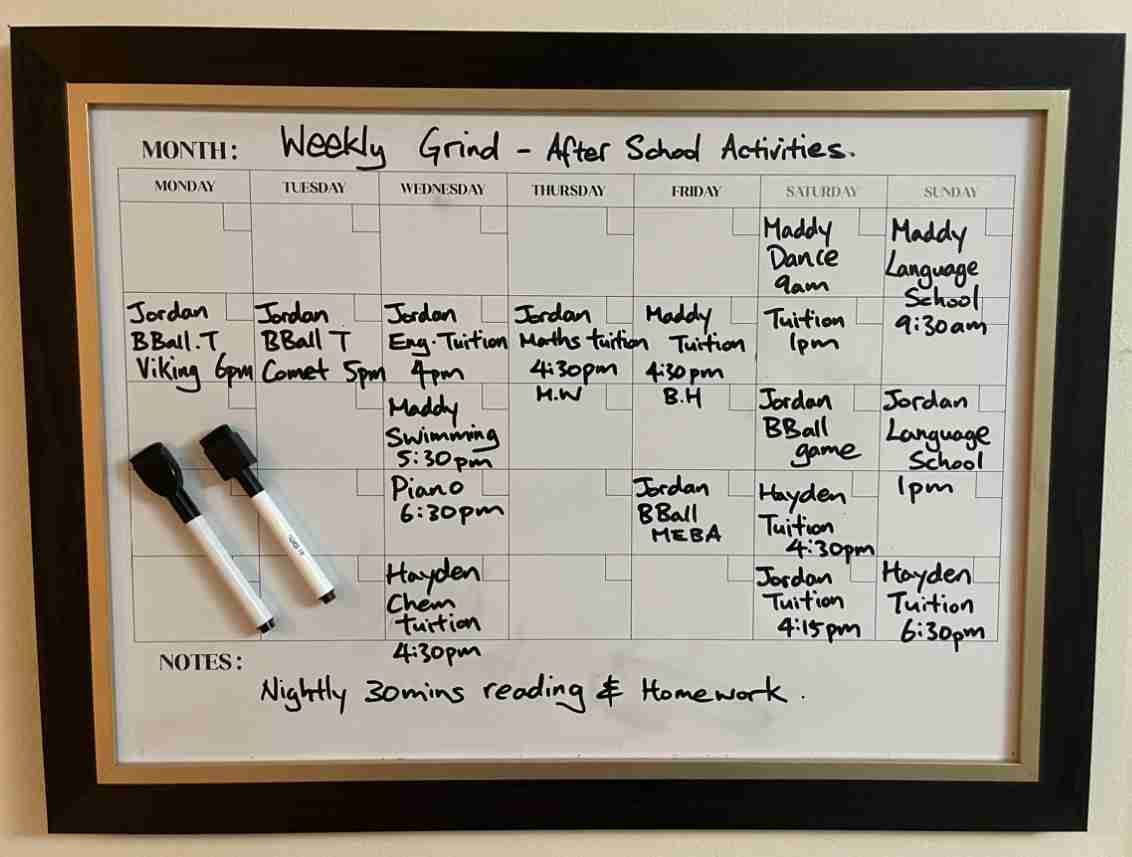 MONTH: Weekly Grind - After School Activities.
MONDAY TUESDAY WEDNESDAY THURSDAY FRIDAY SATURDAY SUNDAY
Jordan
BBall.T
Viking 6pm
Jordan
BBall T
Comet 5pm
Jordan
Eng. Tuition
4pm
Maddy
Swimming
5:30pm
Piano
6:30pm
Hayden
Chem
Tuition
4:30pm
Jordan
Maths tuition
4:30pm
M.W
Maddy
Tuition
4:30pm
B.H
Jordan
BBall
MEBA
Maddy
Dance
9am
Tuition
1pm
Jordan
BBall
game
Hayden
Tuition
4:30pm
Jordan
Tuition
4:15pm
Maddy
Language
School
9:30am
Jordan
Language
School
1pm
Hayden
Tuition
6:30pm
NOTES:
Nightly 30mins reading & Homework.